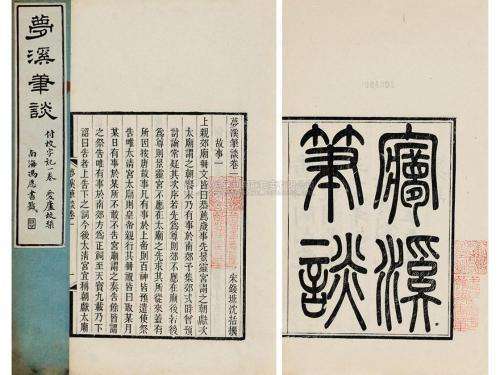 夢溪筆談
付校字記一卷 愛廬校槧
南海馮愿書籤
夢溪筆談卷一
故事一
宋錢塘沈括撰
上親郊廟冊文皆曰恭薦歲事先景靈宮謂之朝獻次
太廟謂之朝饗末乃有事於南郊予集郊式時曾預
討論常疑其次序若先為尊則郊不應在廟後若後
為尊則景靈宮不應在太廟之先求其所從來蓋有
所因按唐故事凡有事於上帝則百神皆預遣使祭
告唯太清宮太廟則皇帝親行其冊祝皆曰取某月
某日有事於某所不敢不告宮廟謂之奏告餘皆謂
之祭告唯有事於南郊方為正祠至天寶九載乃下
詔曰告者上告下之詞今後太清宮宜稱朝獻太廟
夢溪筆談卷一
㝱溪
筆談